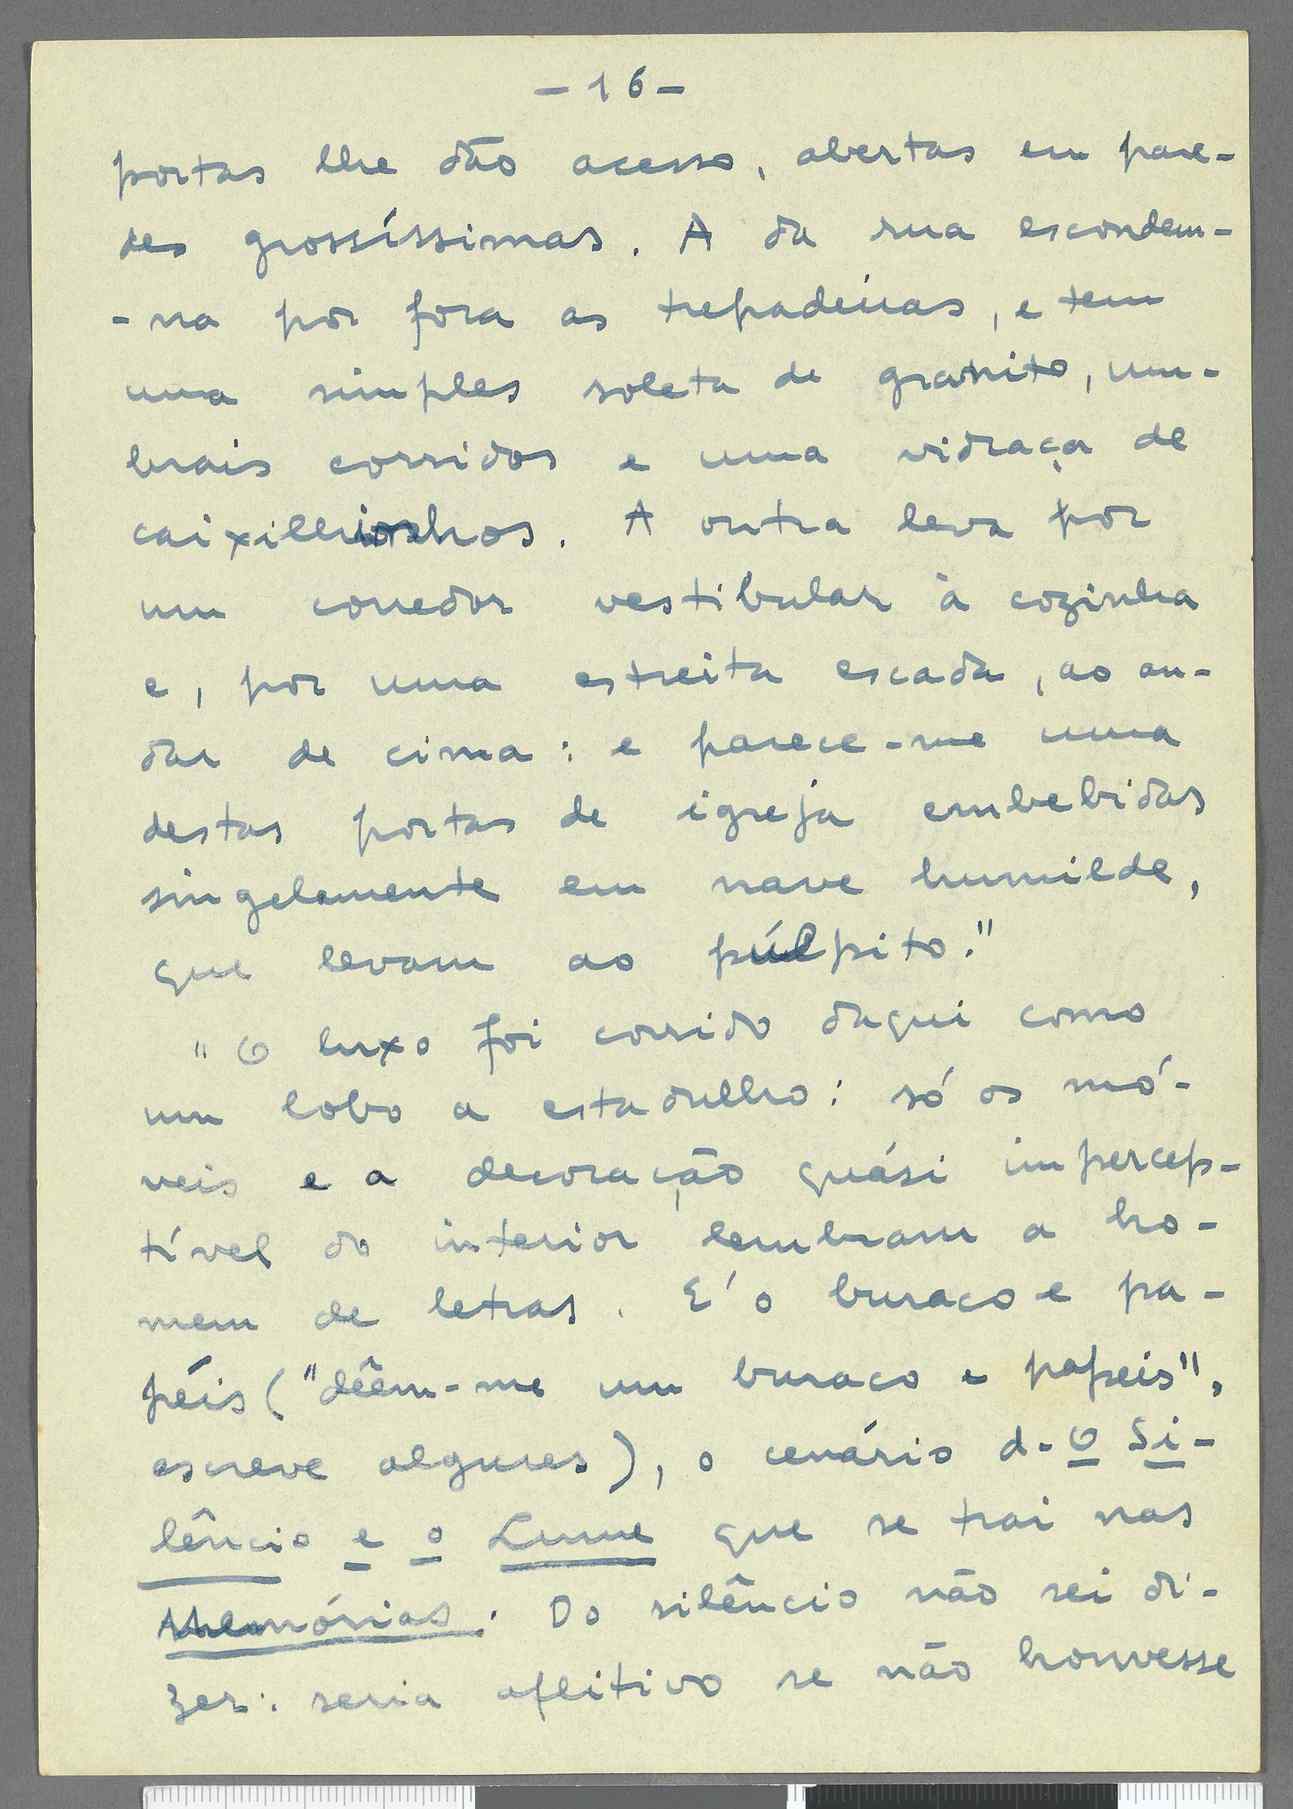 - 16 -
portas lhe dão acesso, abertas em pare-
des grossíssimas. A da rua escondem-
-na por fora as trepadeiras, e tem
uma simples soleta de granito, um-
brais corridos e uma vidraça de
caixilhinhos. A outra leva por
um corredor vestibular à cozinha
e, por uma estreita escada, ao an-
dar de cima: e parece-me uma
destas portas de igreja embebidas
singelamente em nave humilde,
que levam ao púlpito."
"O luxo foi corrido daqui como
um lobo a estadulho: só os mó-
veis e a decoração quási impercep-
tível do interior lembram a ho-
mem de letras. E' o buraco e pa-
péis ("dêem-me um buraco e papeis",
escreve algures), o cenário d-O Si-
lêncio e o Lume que se trai nas
Memórias. Do silêncio não sei di-
zer: seria aflitivo se não houvesse